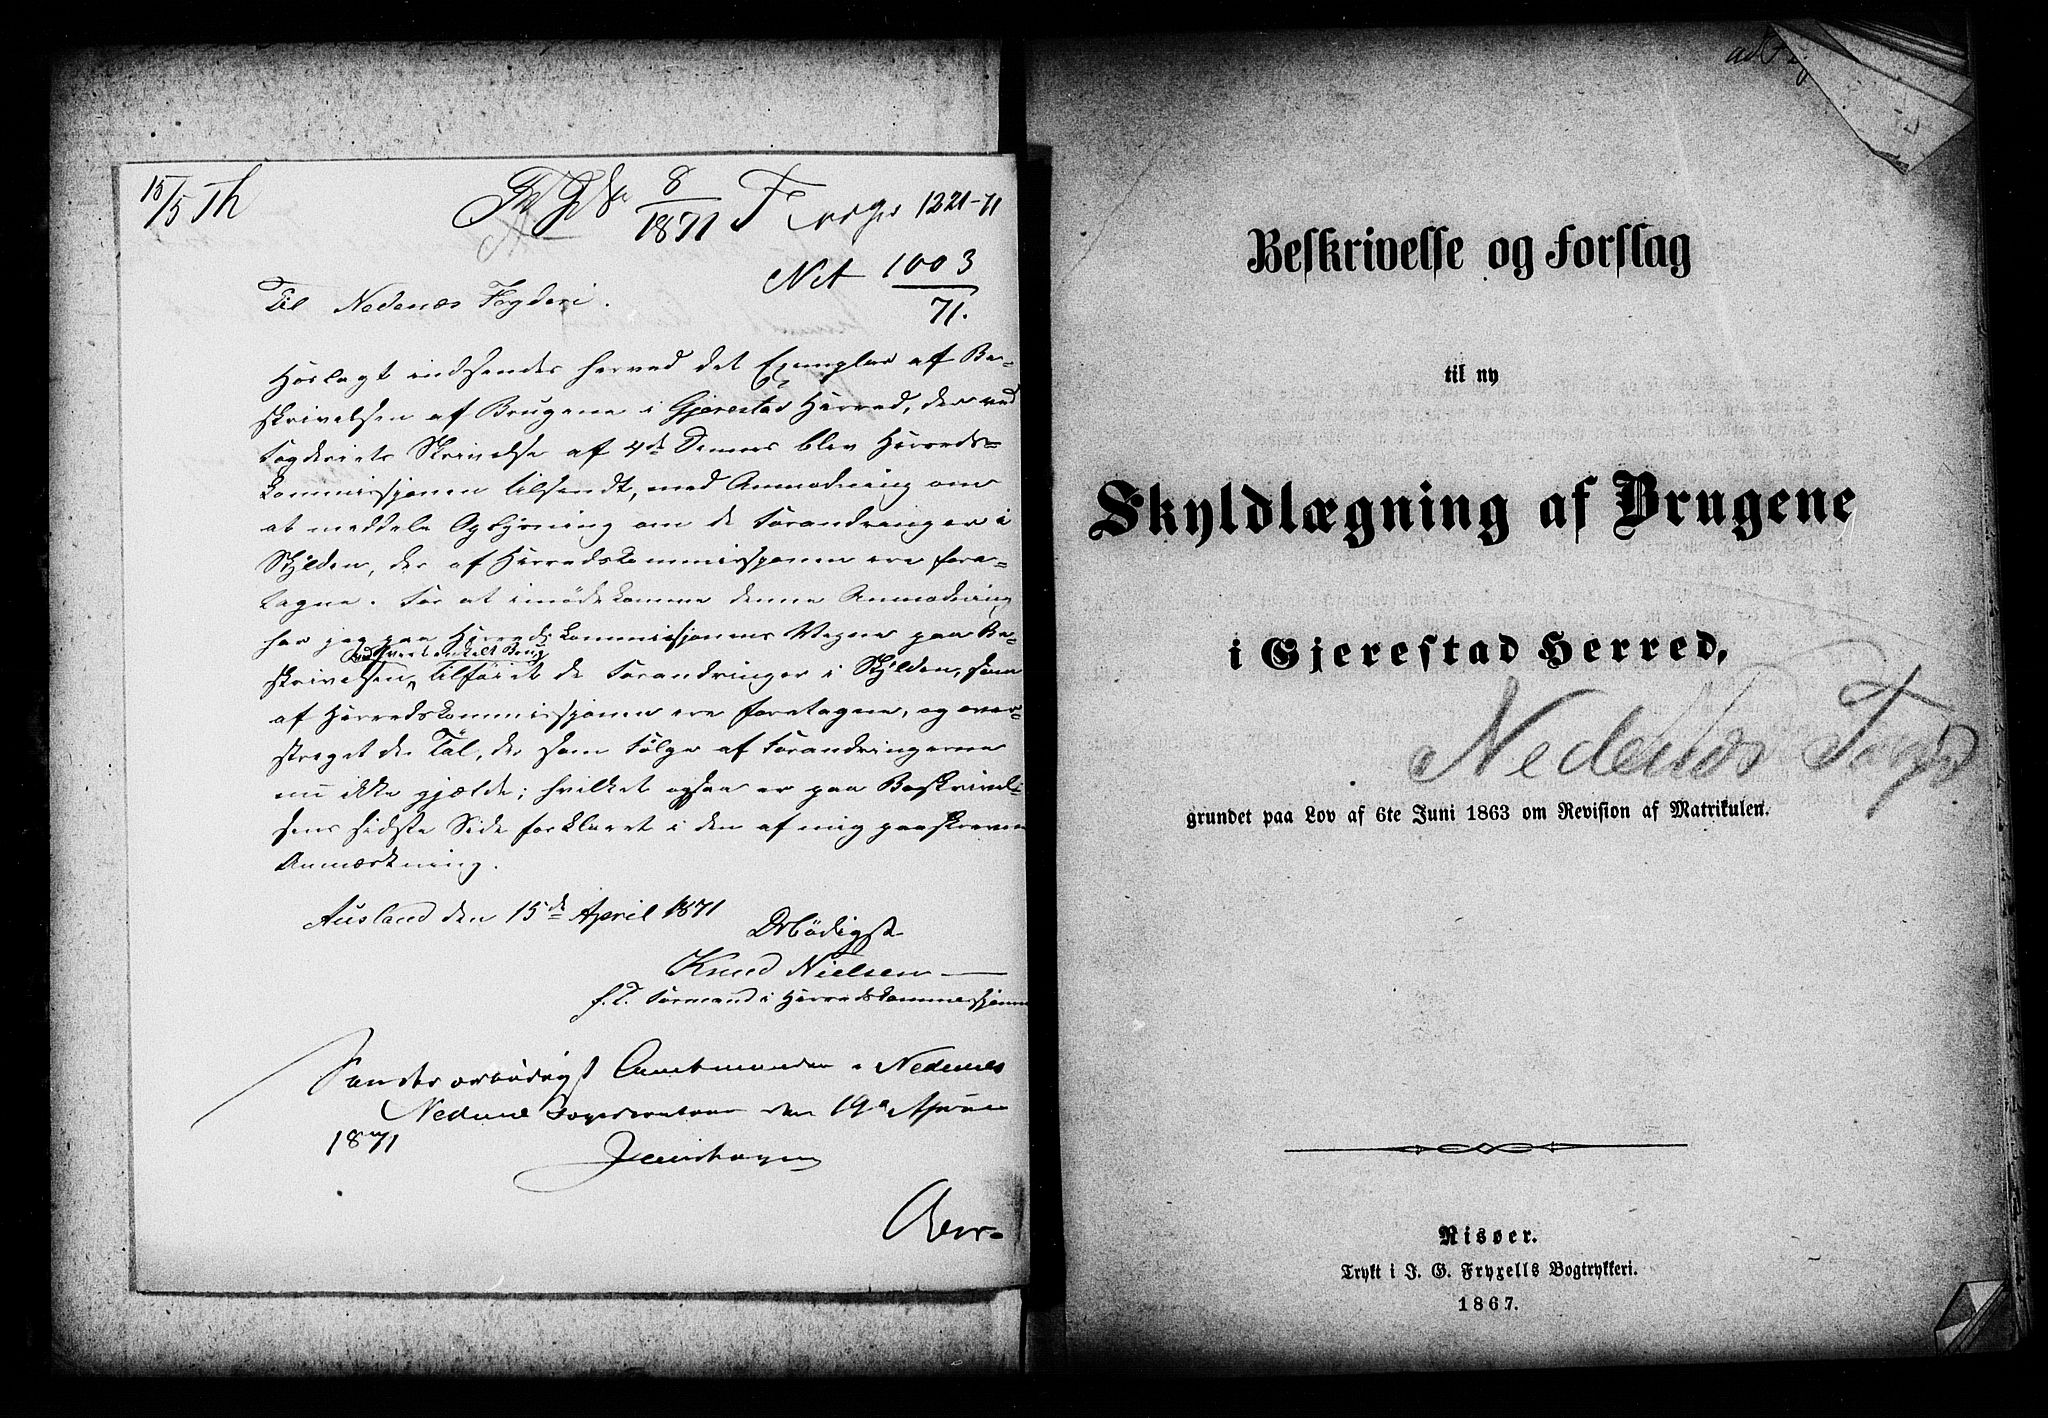 15/5 Th
8/1871
1221-71
Nst 1003/71.
Til Nedenæs Fogderi.
Hoslagt indsendes herved det Exemplar af Be-
skrivelsen af Brugene i Gjerestad Herred, der ved
Fogderiets Skrivelse af 4de Dennes blev Herreds-
kommissjonen tilsendt, med Anmodning om
at meddele Oplysning om de Forandringer i
Skylden, der af Herredskommissjonen ere fore-
tagne. For at imødekomme denne Anmodning
har jeg paa Herredskommissjonens Vegne paa Be-
skrivelsen, ved hvert enkelt Brug tilføiet de Forandringer i Skylden, som
af Herredskommissjonen ere foretagne, og over-
streget de Tal, der som Følge af Forandringerne
nu ikke gjælde; hvilket ogsaa er paa Beskrivel-
sens sidste Side forklaret i den af mig paaskrevne
Anmærkning.
Ausland den 15de April 1871
Ærbødigst
Knud Nielsen
f. T. Formand i Herredskommissjonen
Sendes ærbødigst Amtmanden i Nedenes
Nedenes Fogedcontoir den 19 April
1871
Beskrivelse og Forslag
til ny
Skyldlægning af Brugene
i Gjerestad Herred,
Nedenæs Fogd
grundet paa Lov af 6te Juni 1863 om Revision af Matrikulen.
Risøer.
Trykt i J. G. Fryxells Bogtrykkeri.
1867.